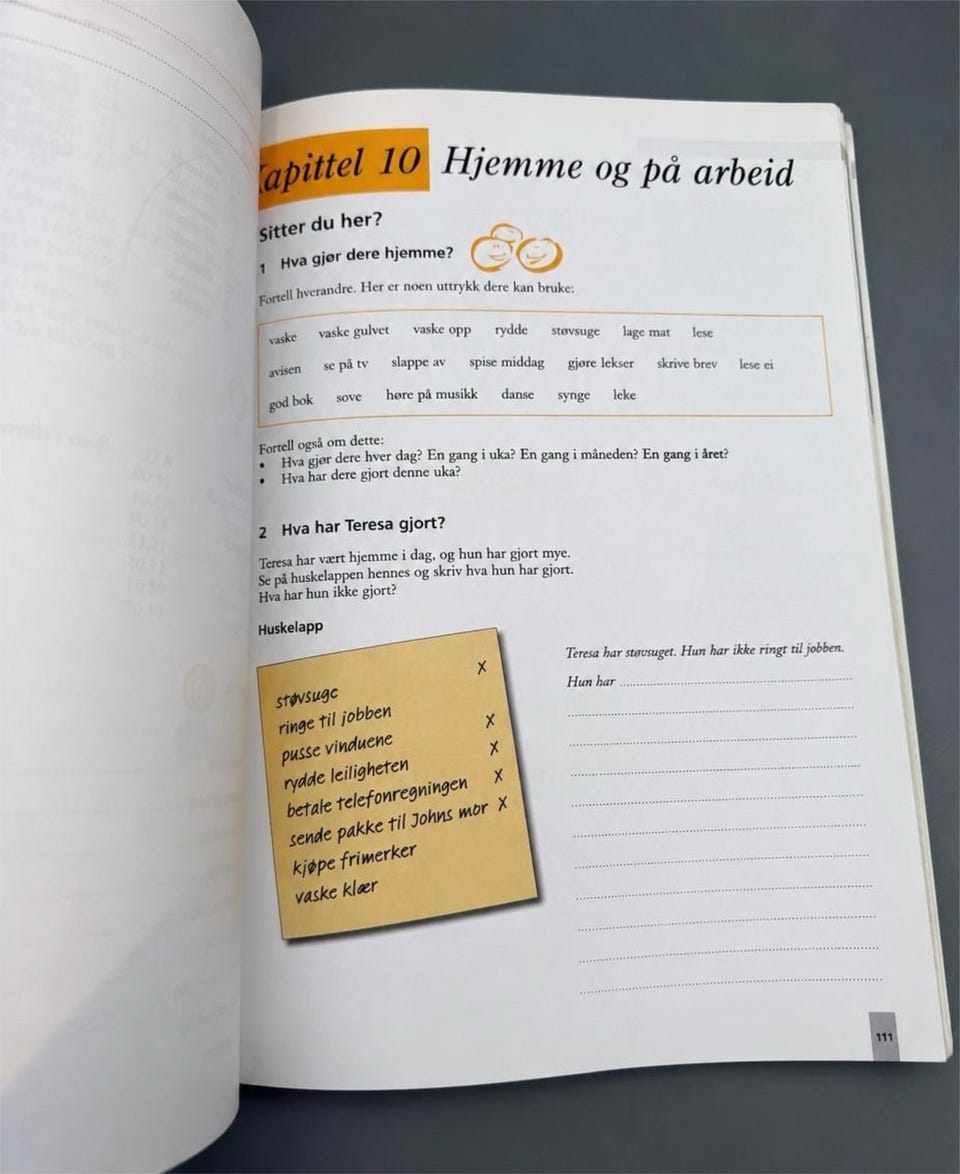 Kapittel 10 Hjemme og på arbeid
Sitter du her?
1 Hva gjør dere hjemme?
Fortell hverandre. Her er noen uttrykk dere kan bruke:
vaske vaske gulvet vaske opp rydde støvsuge lage mat lese
avisen se på tv slappe av spise middag gjøre lekser skrive brev lese ei
god bok sove høre på musikk danse synge leke
Fortell også om dette:
• Hva gjør dere hver dag? En gang i uka? En gang i måneden? En gang i året?
• Hva har dere gjort denne uka?
2 Hva har Teresa gjort?
Teresa har vært hjemme i dag, og hun har gjort mye.
Se på huskelappen hennes og skriv hva hun har gjort.
Hva har hun ikke gjort?
Huskelapp
støvsuge X
ringe til jobben
pusse vinduene X
rydde leiligheten X
betale telefonregningen X
sende pakke til Johns mor X
kjøpe frimerker
vaske klær
Teresa har støvsuget. Hun har ikke ringt til jobben.
Hun har
111